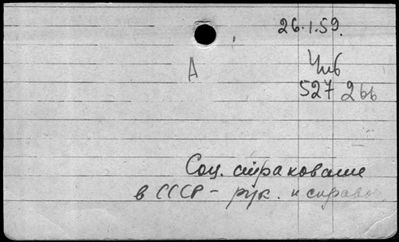 26.1.59.
А
Чиб
527 266
Соц. страхование
в СССР - рук. и справоч.